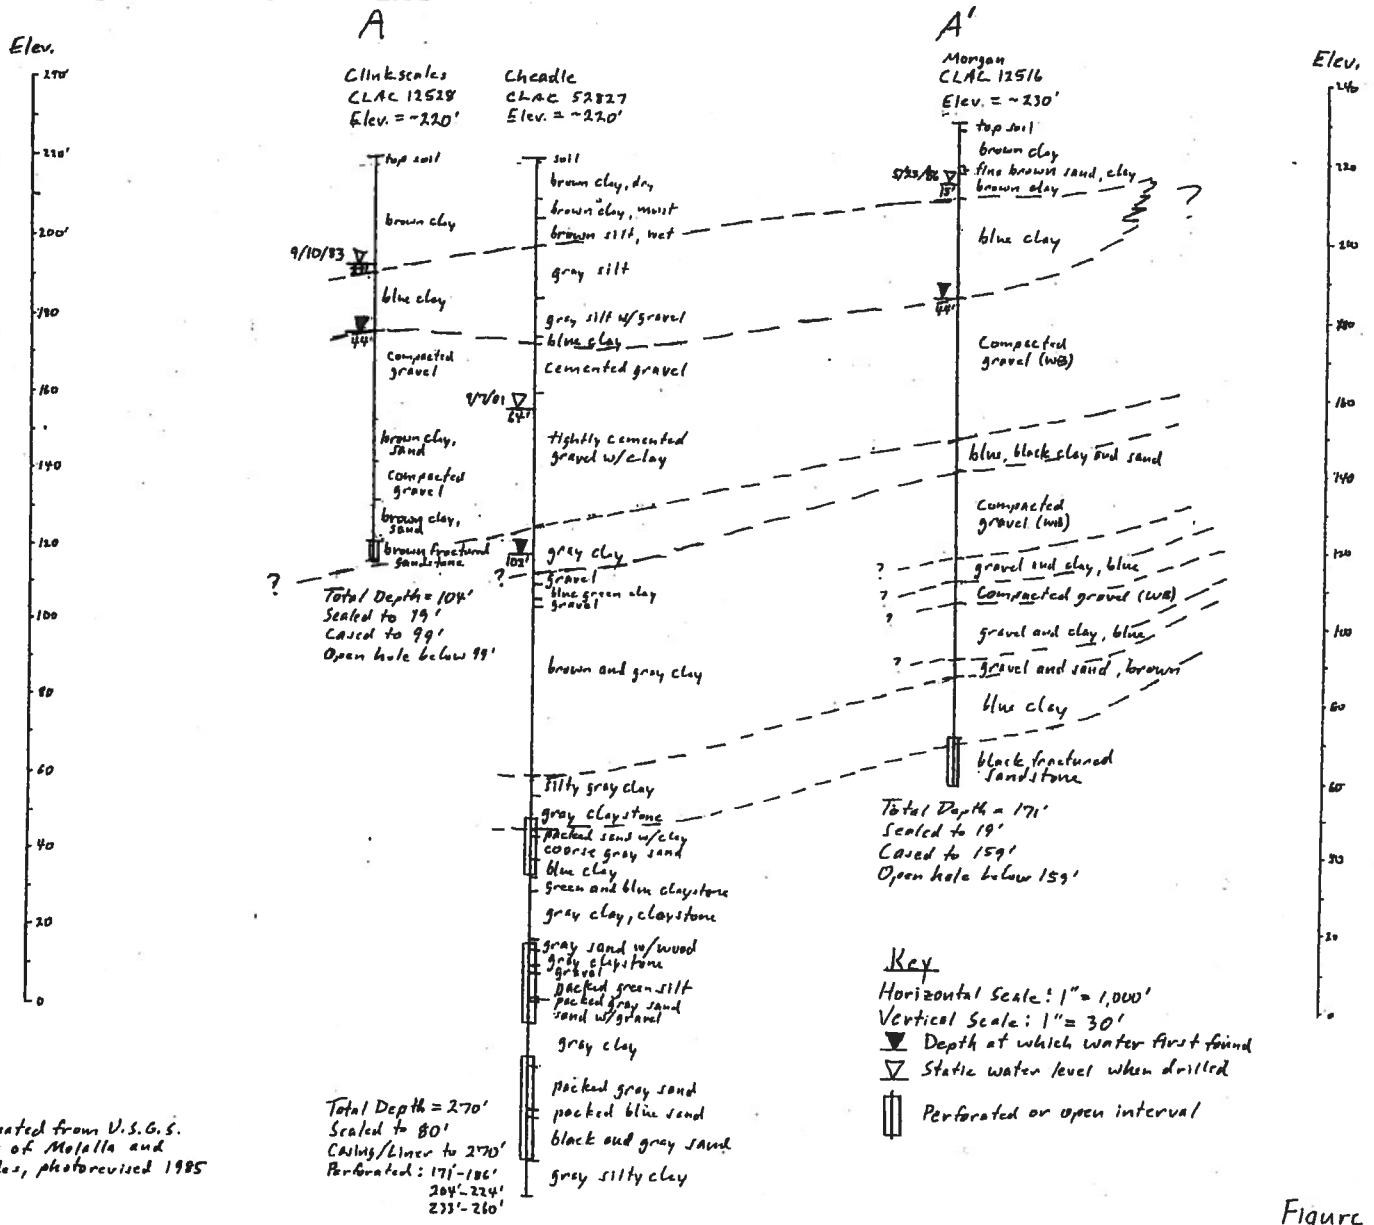 A
A'
Elev.
240'
220'
200'
180
160
140
120
100
80
60
40
20
0
Clinkscales
CLAC 12528
Elev. = ~220'
top soil
brown clay
9/10/83
blue clay
44'
Compacted
gravel
brown clay,
sand
Compacted
gravel
brown clay,
sand
brown fractured
sandstone
?
Total Depth = 104'
Sealed to 19'
Cased to 99'
Open hole below 99'
Cheadle
CLAC 52827
Elev. = ~220'
soil
brown clay, dry
brown clay, moist
brown silt, wet
gray silt
gray silt w/gravel
blue clay
cemented gravel
64'
tightly cemented
gravel w/clay
gray clay
102'
?
gravel
blue green clay
gravel
brown and gray clay
silty gray clay
gray claystone
packed sand w/clay
coarse gray sand
blue clay
green and blue claystone
gray clay, claystone
gray sand w/wood
gray claystone
gravel
packed green silt
packed gray sand
sand w/gravel
gray clay
packed gray sand
packed blue sand
black and gray sand
gray silty clay
Total Depth = 270'
Sealed to 80'
Casing/Liner to 270'
Perforated: 171'-186'
204'-224'
233'-260'
Morgan
CLAC 12516
Elev. = ~230'
top soil
brown clay
fine brown sand, clay
5/23/86
15'
brown clay
?
blue clay
44'
Compacted
gravel (WB)
blue, black clay and sand
Compacted
gravel (WB)
?
gravel and clay, blue
?
Compacted gravel (WB)
?
gravel and clay, blue
?
gravel and sand, brown
blue clay
black fractured
sandstone
Total Depth = 171'
Sealed to 19'
Cased to 159'
Open hole below 159'
Elev.
240
220
200
180
160
140
120
100
80
60
20
0
Key
Horizontal Scale: 1" = 1,000'
Vertical Scale: 1" = 30'
Depth at which water first found
Static water level when drilled
Perforated or open interval
nated from U.S.G.S.
of Molalla and
les, photorevised 1985
Figure